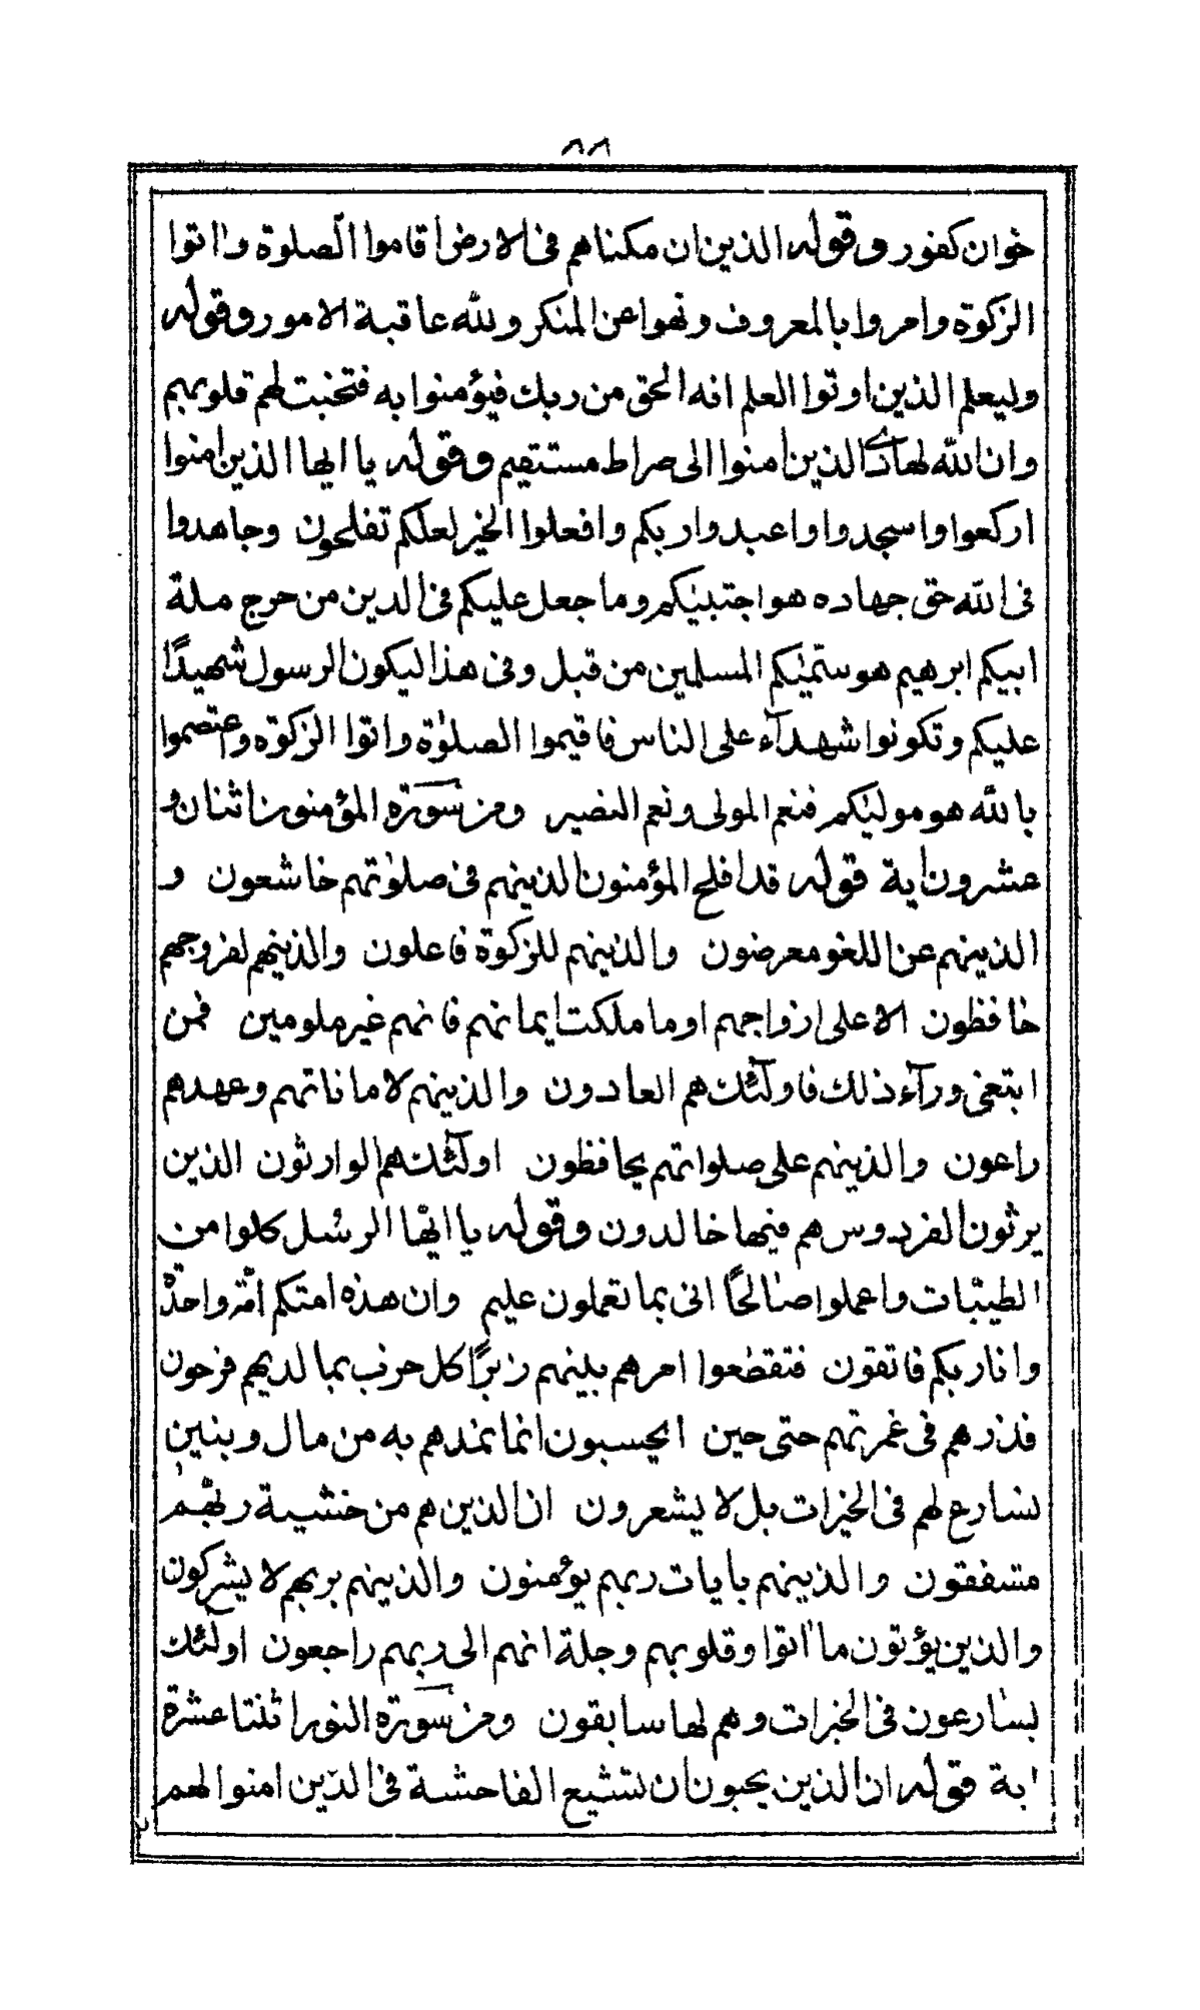 ٨٨
خوان كفور وقوله الذين ان مكناهم فى الارض اقاموا الصلوة واتوا
الزكوة وامروا بالمعروف ونهوا عن المنكر ولله عاقبة الامور وقوله
وليعلم الذين اوتوا العلم انه الحق من ربك فيؤمنوا به فتخبت لهم قلوبهم
وان الله لهادى الذين امنوا الى صراط مستقيم وقوله يا ايها الذين امنوا
اركعوا واسجدوا واعبدوا ربكم وافعلوا الخير لعلكم تفلحون وجاهدوا
فى الله حق جهاده هو اجتبيٰكم وما جعل عليكم فى الدين من حرج ملة
ابيكم ابرهيم هو سمّيٰكم المسلمين من قبل وفى هذا ليكون الرسول شهيدًا
عليكم وتكونوا شهدآء على الناس فاقيموا الصلوٰة واتوا الزكوة واعتصموا
بالله هو موليٰكم فنعم المولى ونعم النصير ومن سورة المؤمنون اثنان و
عشرون اية قوله قد افلح المؤمنون الذينهم فى صلوٰتهم خاشعون و
الذينهم عن اللغو معرضون والذينهم للزكوة فاعلون والذينهم لفروجهم
حافظون الا على ازواجهم او ما ملكت ايمانهم فانهم غير ملومين فمن
ابتغى ورآء ذلك فاولٓئك هم العادون والذينهم لاماناتهم وعهدهم
راعون والذينهم على صلواتهم يحافظون اولٓئك هم الوارثون الذين
يرثون الفردوس هم فيها خالدون وقوله يا ايّها الرسُل كلوا من
الطيّبات واعملوا صالحًا انى بما تعملون عليم وان هذه امتكم امّة واحدةً
وانا ربكم فاتقون فتقطعوا امرهم بينهم زبرًا كل حزب بما لديهم فرحون
فذرهم فى غمرتهم حتى حين ايحسبون انما نمدهم به من مال وبنين
نسارع لهم فى الخيرات بل لا يشعرون ان الذين هم من خشية ربّهم
مشفقون والذينهم بايات ربهم يؤمنون والذينهم بربهم لا يشركون
والذين يؤتون ما اتوا وقلوبهم وجلة انهم الى ربهم راجعون اولٓئك
يسارعون فى الخيرات وهم لها سابقون ومن سورة النور اثنتا عشرة
اية قوله ان الذين يحبون ان تشيع الفاحشة فى الذين امنوا لهم